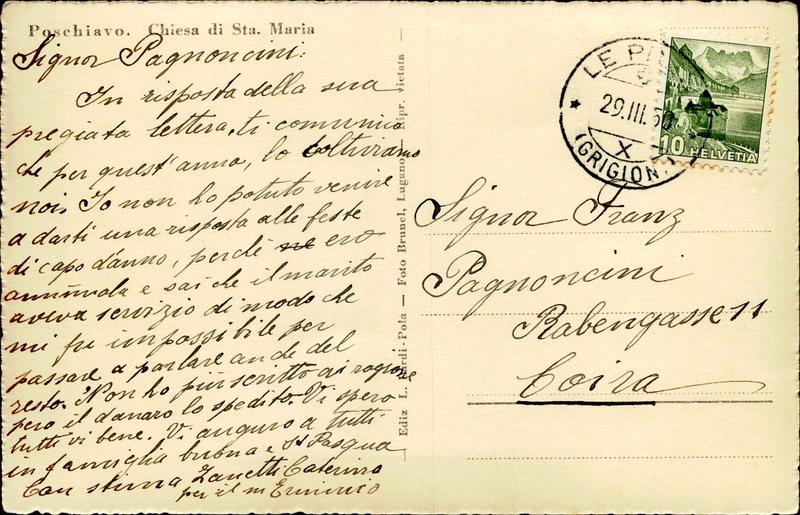 Poschiavo. Chiesa di Sta. Maria
Signor Pagnoncini:
In risposta della sua
pregiata lettera, ti comunico
che per quest'anno, lo coltiviamo
noi. Io non ho potuto venire
a darti una risposta alle feste
di capo d'anno, perché ne ero
ammalata e sai che il marito
aveva servizio di modo che
mi fu impossibile per
passare a parlare anche del
resto. Non ho più scritto ai ragione
però il danaro lo spedito. Vi spero
tutti vi bene. Vi auguro a tutti
in famiglia buona e St Pasqua
Con stima Zanetti Caterina
per il m Erminio
Ediz. L. – Pola — Foto Brunel, Lugano Ripr. vietata —
LE P
29.III.50
X
(GRIGION
10 HELVETIA
Signor Franz
Pagnoncini
Rabengasse 11
Coira